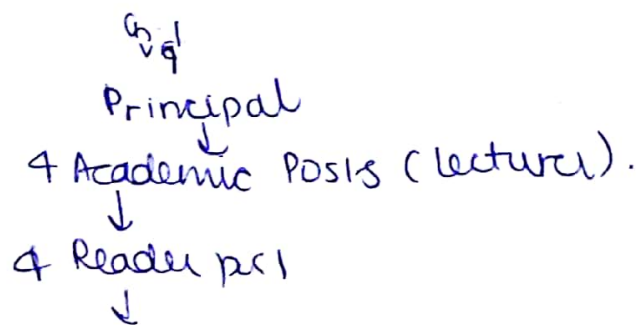 Principal
↓
4 Academic Posts (lecturer).
↓
4 Reader
↓